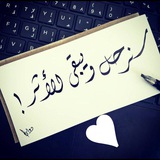 سنرحل ويبقى الأثر!